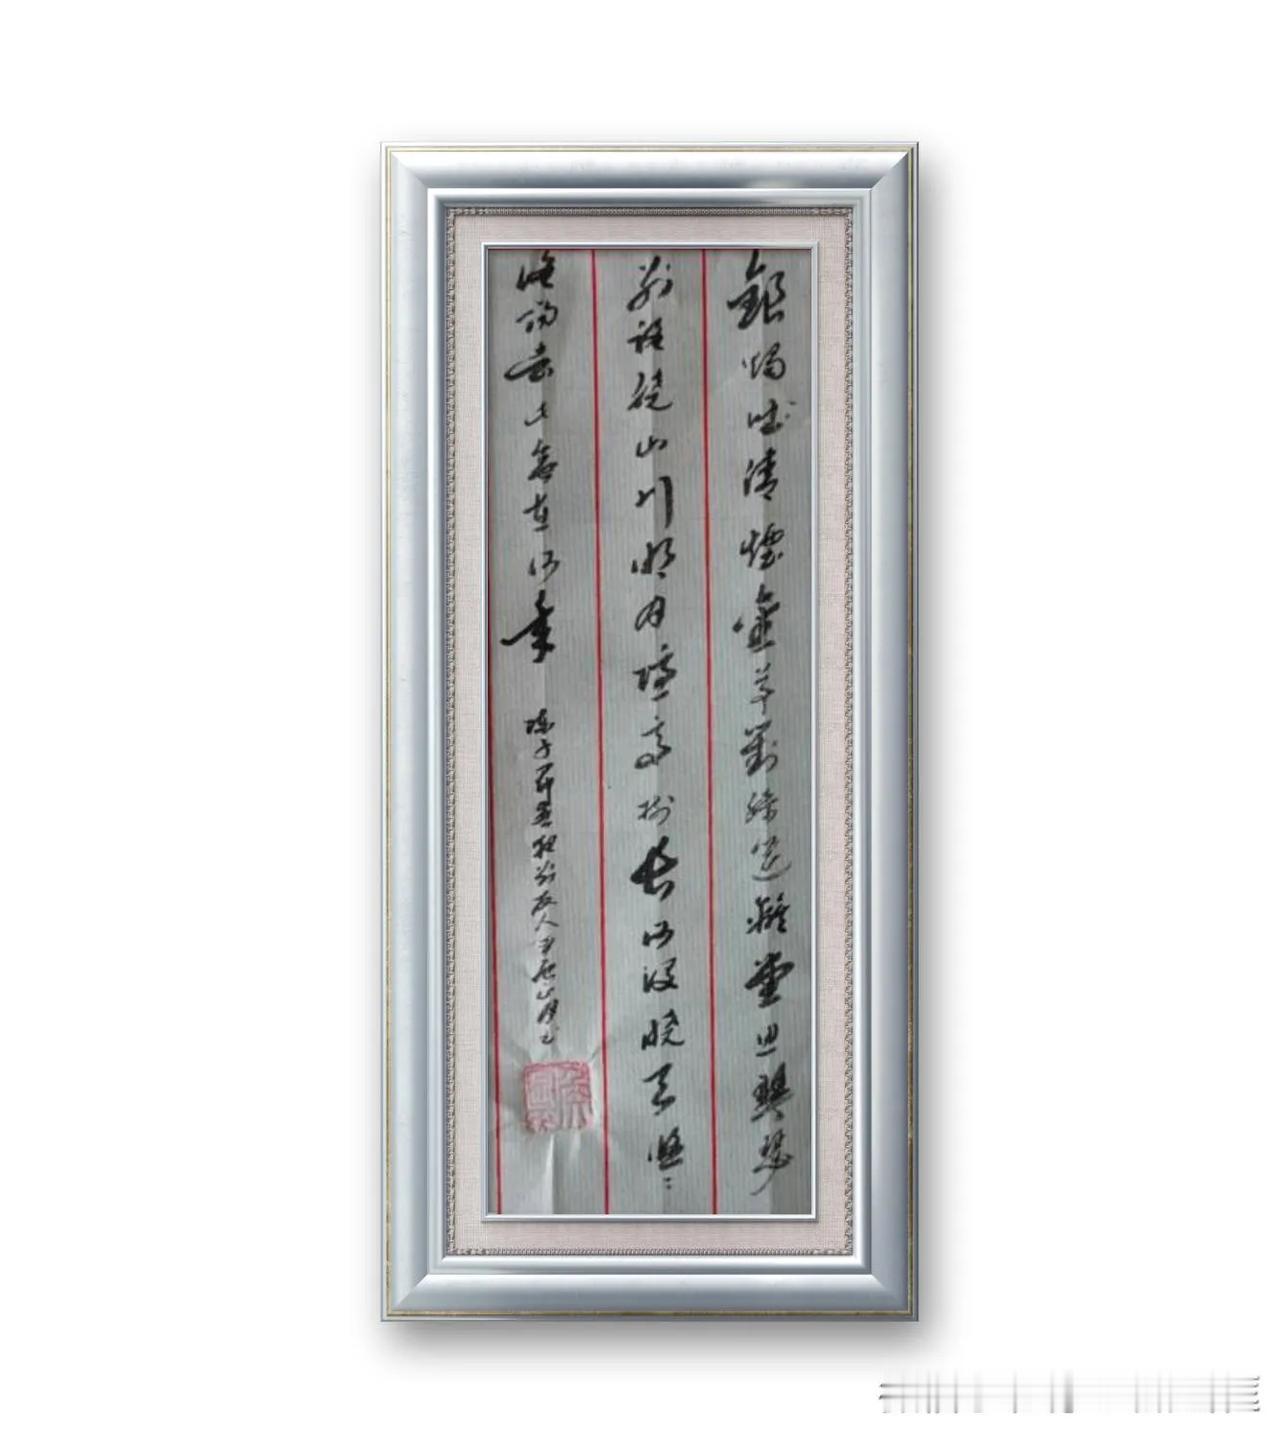 銀燭吐清煙金尊對綺筵離堂思琴瑟
別路繞山川明月隱高樹長河沒曉天悠〻
洛陽去此會在何年
陳子昂春夜別友人